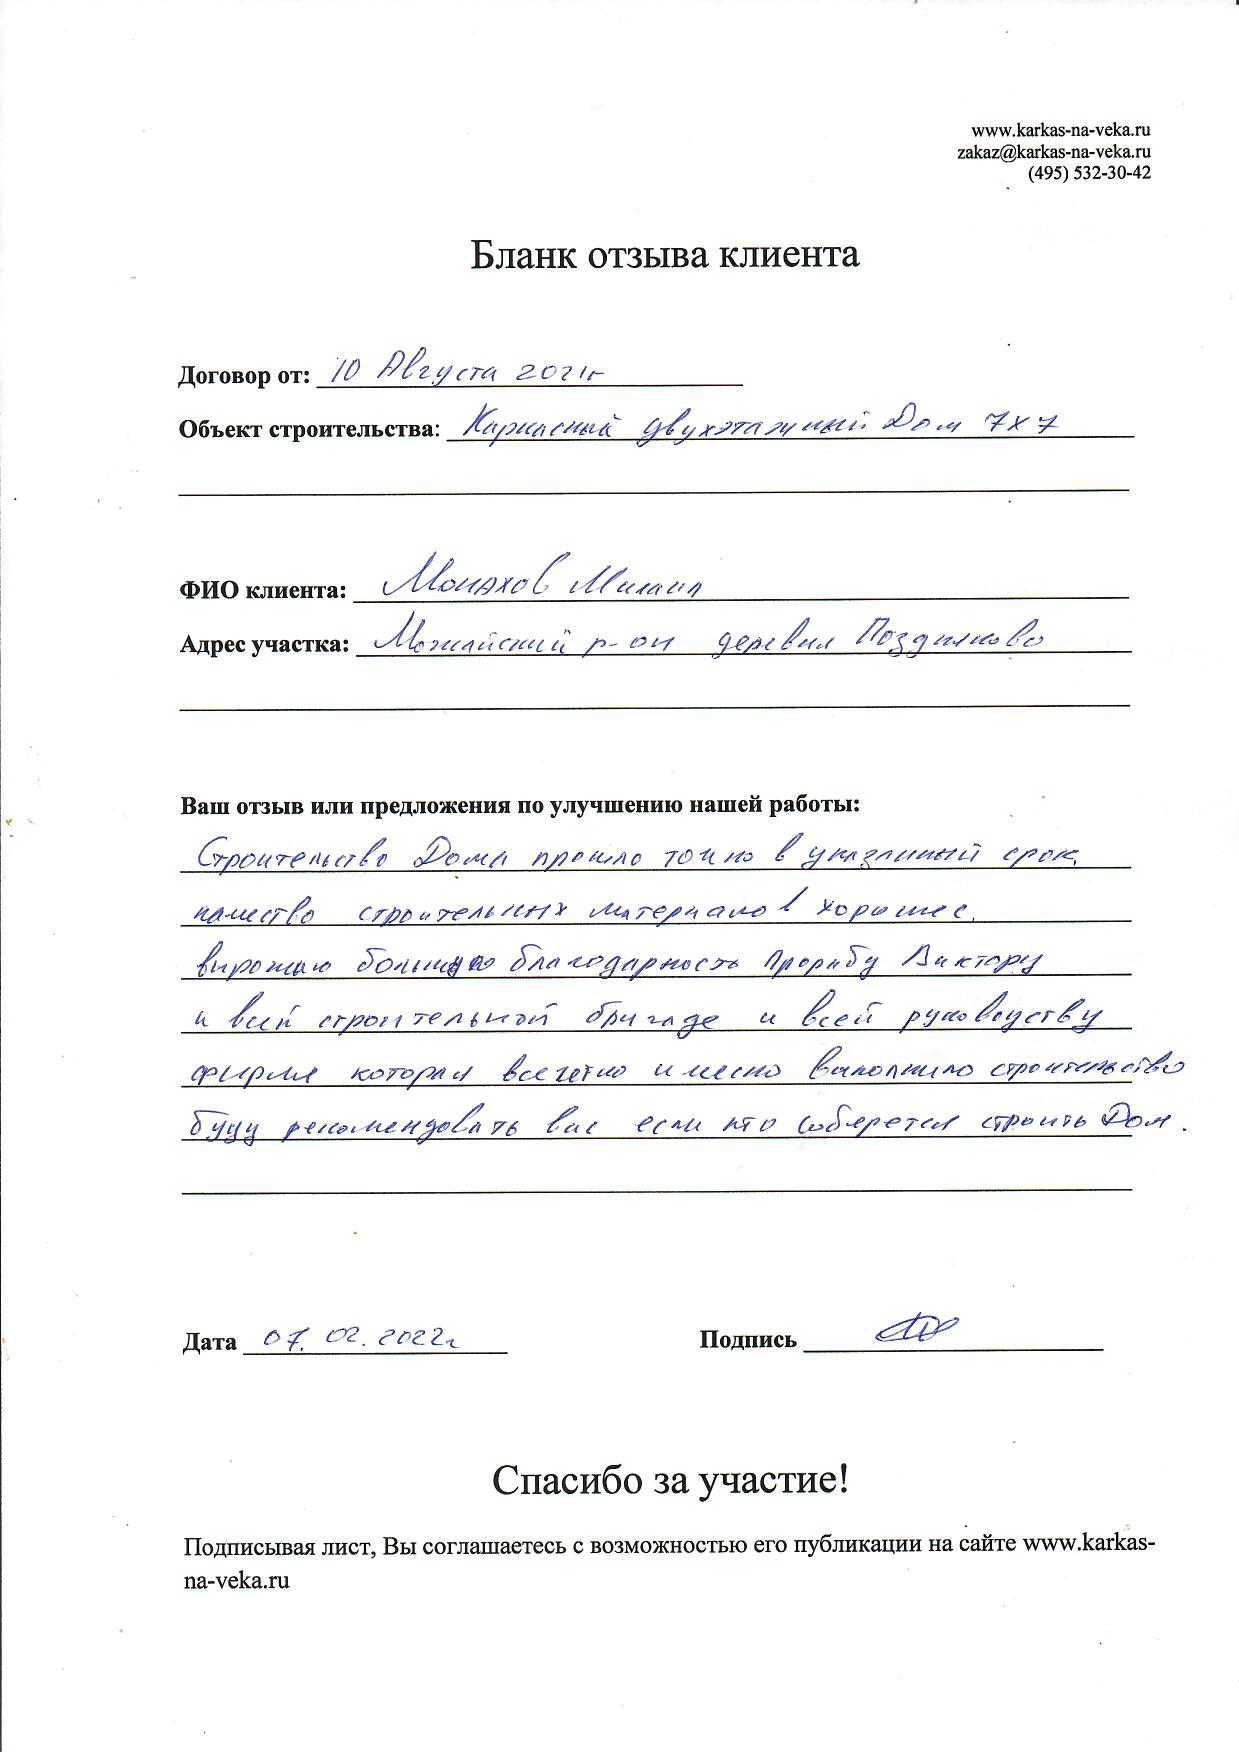 www.karkas-na-veka.ru
zakaz@karkas-na-veka.ru
(495) 532-30-42
Бланк отзыва клиента
Договор от: 10 Августа 2021г
Объект строительства: Каркасный двухэтажный Дом 7х7
ФИО клиента: Монахов Михаил
Адрес участка: Можайский р-он деревня Поздняково
Ваш отзыв или предложения по улучшению нашей работы:
Строительство Дома прошло точно в указанный срок,
качество строительных материалов хорошее.
выражаю большую благодарность Прорабу Виктору
и всей строительной бригаде и всей руководству
фирмы которая всё чётко и честно выполнило строительство
буду рекомендовать вас если кто соберется строить Дом.
Дата 07.02.2022г Подпись
Спасибо за участие!
Подписывая лист, Вы соглашаетесь с возможностью его публикации на сайте www.karkas-
na-veka.ru